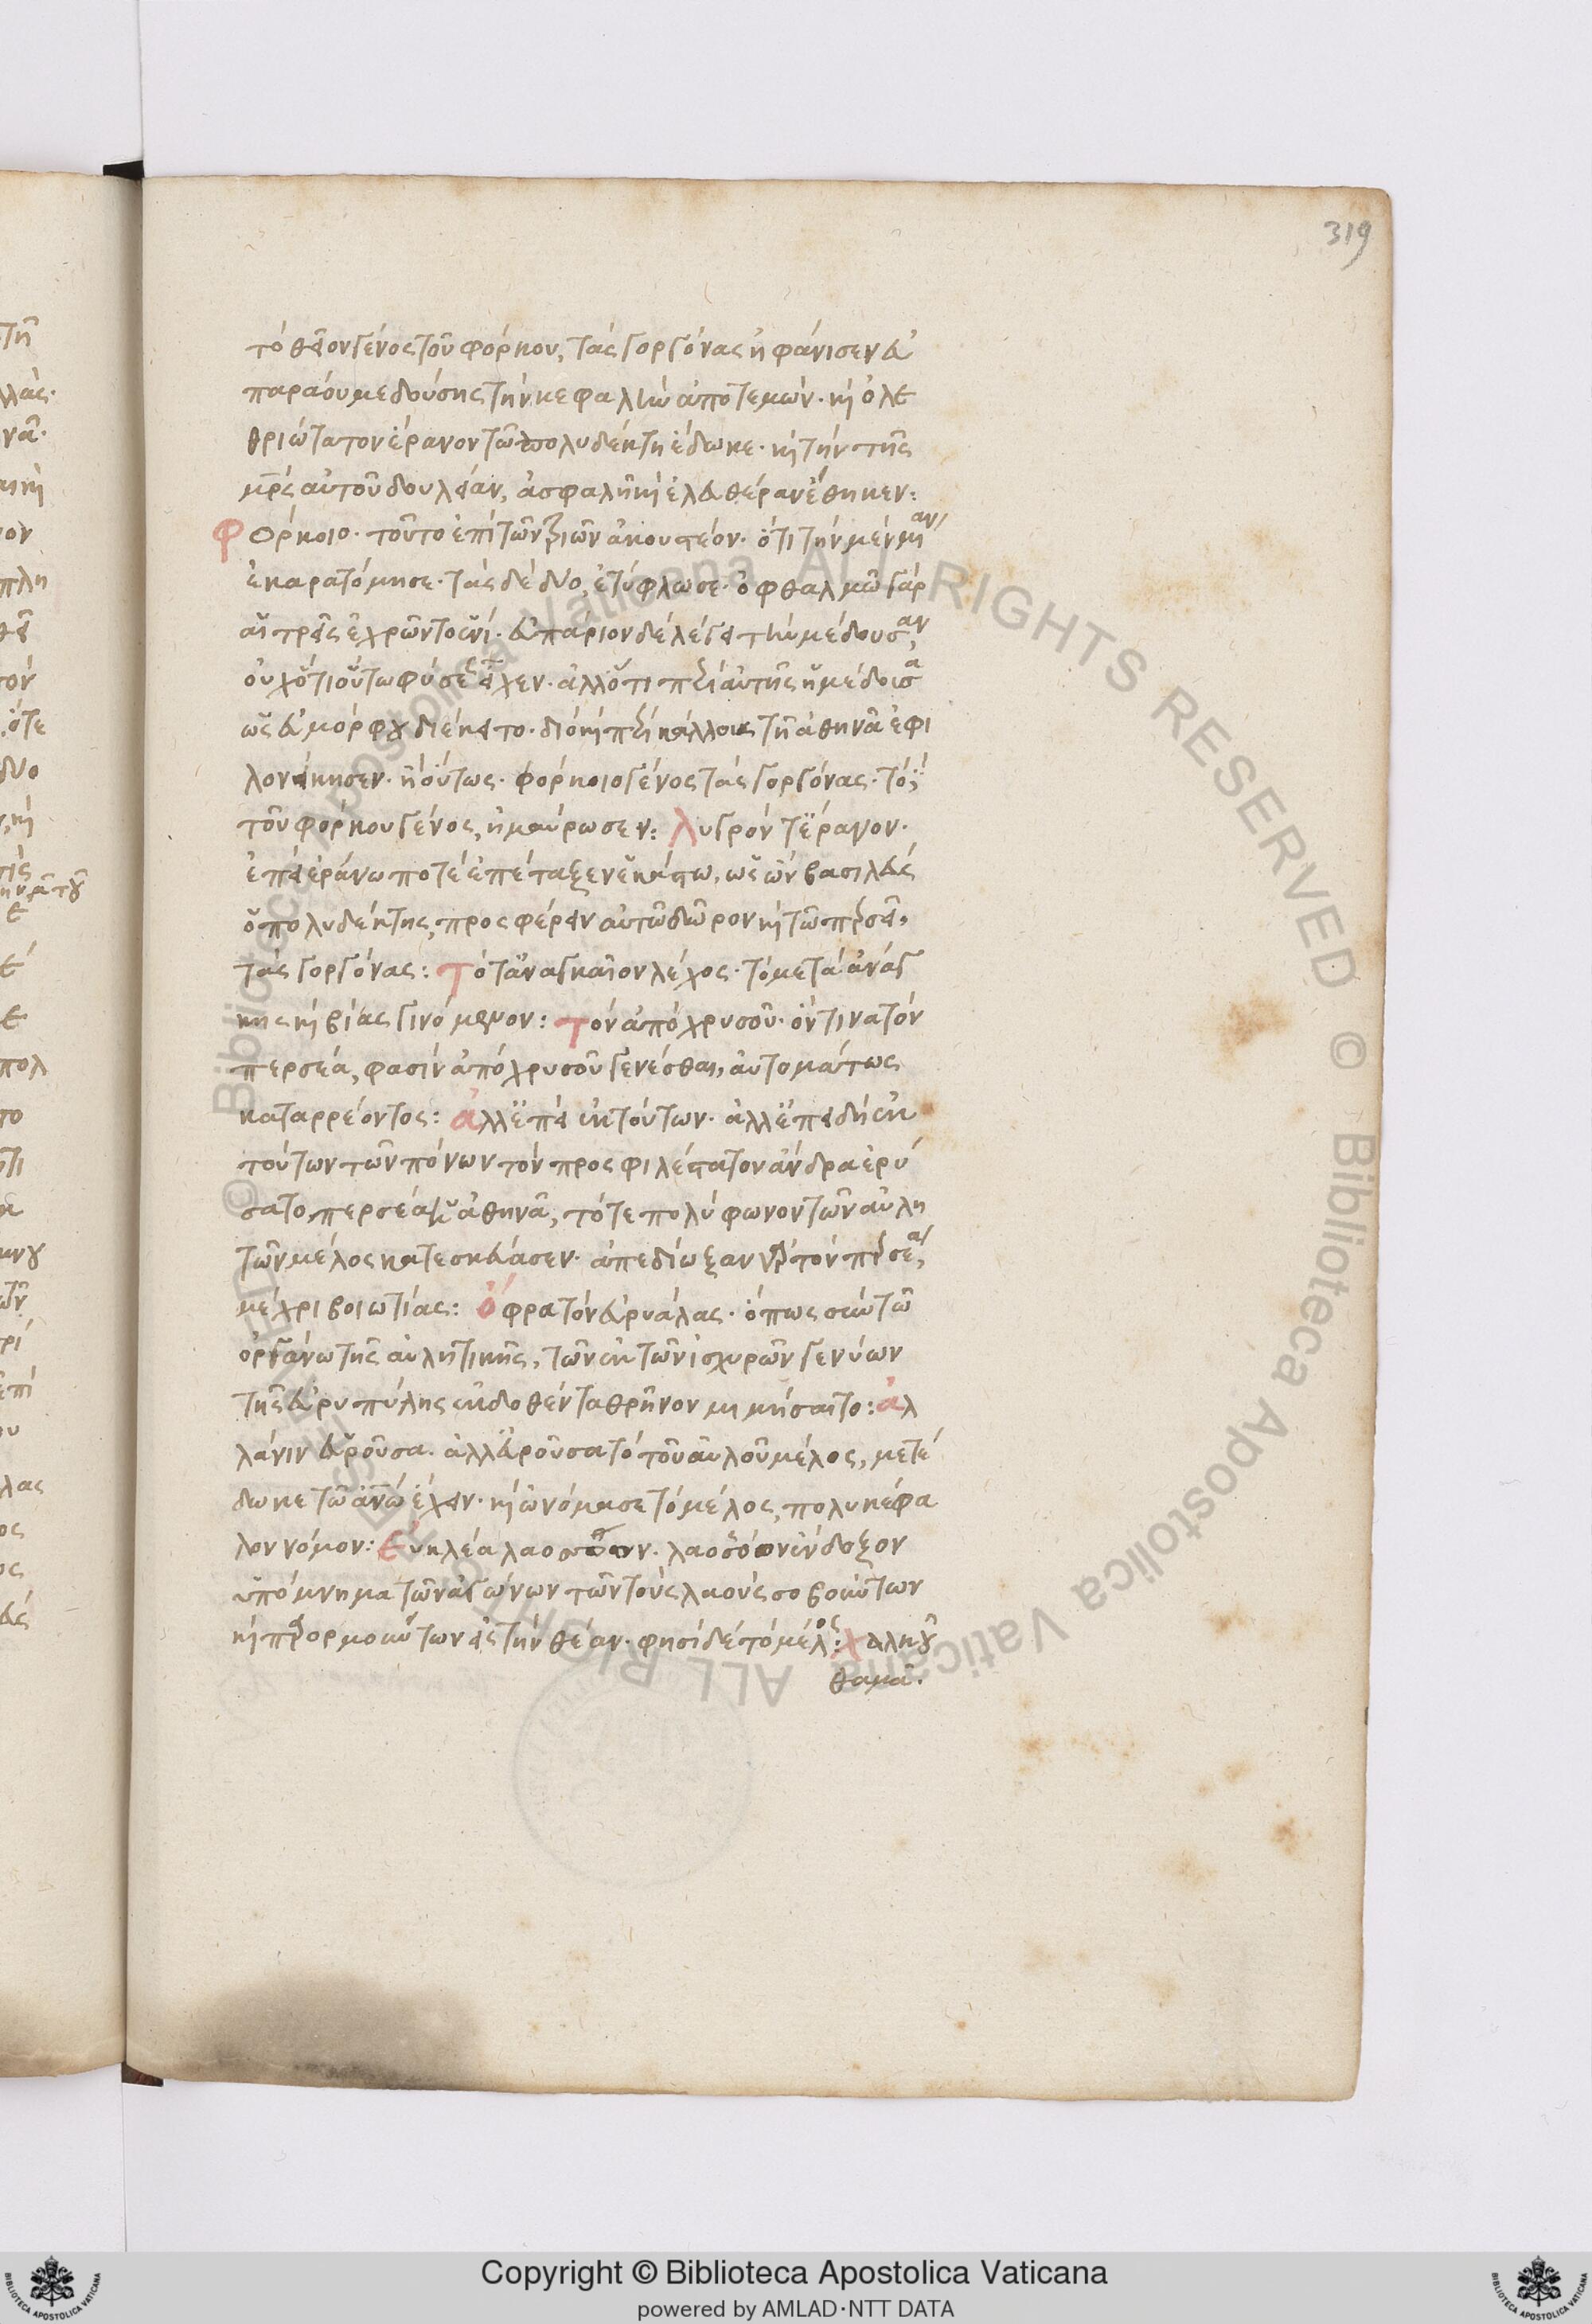 319
τὸ θεῖον γένος τοῦ φόρκου, τὰς γοργόνας ἠφάνισεν εὐ
παράου μεδούσης τὴν κεφαλὴν ἀποτεμών. καὶ ὀλε
θριώτατον ἔρανον τῶ πολυδέκτη ἔδωκε. καὶ τὴν τῆς
μρς αὐτοῦ δουλείαν, ἀσφαλῆ καὶ ἐλευθέραν ἔθηκεν:
Φόρκοιο. τοῦτο ἐπὶ τῶν τριῶν ἀκουστέον. ὅτι τὴν μὲν μίαν
ἐκαρατόμησε. τὰς δὲ δύο, ἐτύφλωσε. ὀφθαλμῶ γὰρ
αἱ τρεῖς ἐχρῶντο ἑνί. εὐπάριον δὲ λέγει τὴν μέδουσαν,
οὐχ ὅτι οὕτω φύσεως εἶχεν. ἀλλ ὅτι περὶ αὐτῆς ἡ μέδοισα
ὡς εὐμόρφου διέκειτο. διὸ καὶ περὶ κάλλους τῆ ἀθηνᾶ ἐφι
λονείκησεν. ἢ οὕτως. φόρκοιο γένος τὰς γοργόνας. τὸ
τοῦ φόρκου γένος, ἠμαύρωσεν: λυγρόν τ ἔρανον.
ἐπεὶ ἐράνω ποτὲ ἐπέταξεν ἑκάστω, ὡς ὢν βασιλεὺς
ὁ πολυδέκτης, προσφέρειν αὐτῶ δῶρον καὶ τῶ περσεῖ,
τὰς γοργόνας: τό τ ἀναγκαῖον λέχος. τὸ μετὰ ἀνάγ
κης καὶ βίας γινόμενον: τὸν ἀπὸ χρυσοῦ. ὅντινα τὸν
περσέα, φασὶν ἀπὸ χρυσοῦ γενέσθαι, αὐτομάτως
καταρρέοντος: ἀλλ ἐπεὶ ἐκ τούτων. ἀλλ ἐπειδὴ ἐκ
τούτων τῶν πόνων τὸν προσφιλέστατον ἄνδρα ἐρύ
σατο περσέα ἡ ἀθηνᾶ, τότε πολύφωνον τῶν αὐλη
τῶν μέλος κατεσκεύασεν. ἀπεδίωξαν γὰρ τὸν περσέα,
μέχρι βοιωτίας: ὄφρα τὸν εὐρυάλας. ὅπως σὺν τῶ
ὀργάνω τῆς αὐλητικῆς, τῶν ἐκ τῶν ἰσχυρῶν γενύων
τῆς εὐρυπύλης ἐκδοθέντα θρῆνον μιμήσαιτο: ἀλ
λά νιν εὑροῦσα. ἀλλ εὑροῦσα τὸ τοῦ αὐλοῦ μέλος, μετέ
δωκε τῶ ἀνω ἔχειν. καὶ ὠνόμασε τὸ μέλος, πολυκέφα
λον νόμον: εὐκλέα λαοσσόων. λαοσσόον ἔνδοξον
ὑπόμνημα τῶν ἀγώνων τῶν τοὺς λαοὺς σοβούντων
καὶ προορμούντων εἰς τὴν θέαν. φησὶ δὲ τὸ μέλος: χαλκοῦ
θαμά.
Copyright © Biblioteca Apostolica Vaticana
powered by AMLAD·NTT DATA